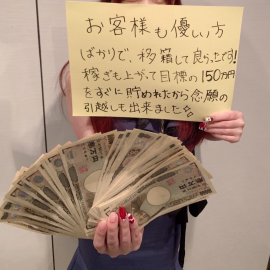 お客様も優しい方
ばかりで、移籍して良かったです!
稼ぎも上がって目標の150万円
をすぐに貯めれたから念願の
引越しも出来ました